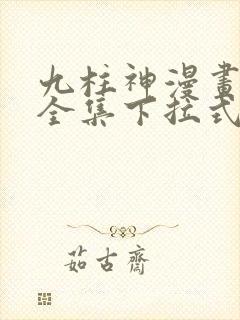 九柱神漫畫
全集下拉式
茹古齋